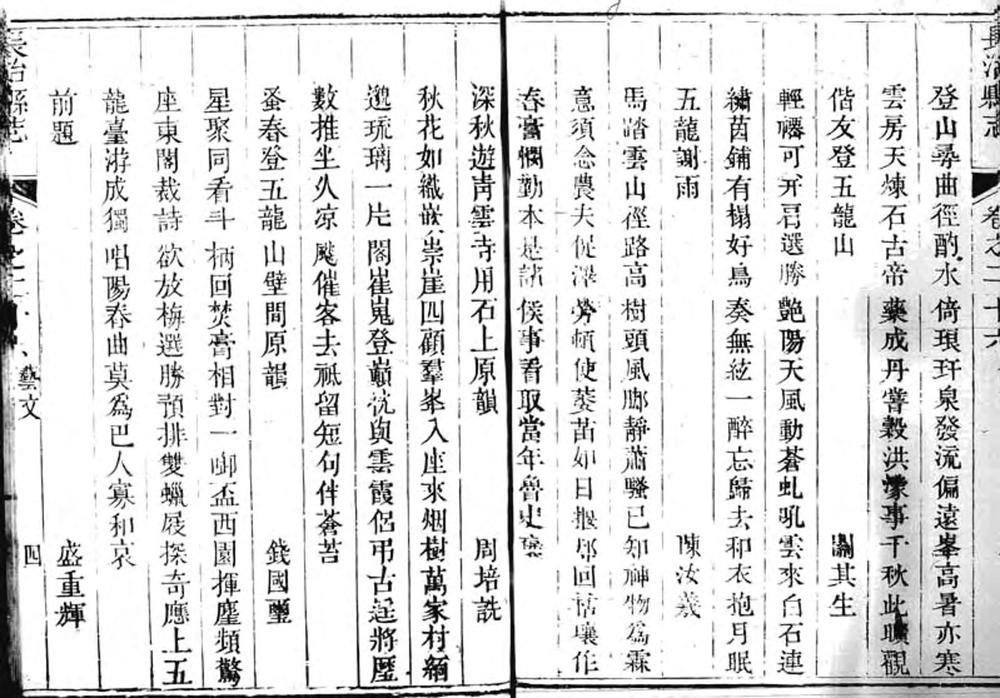 長治縣志 卷之二十六
登山尋曲徑酌水倚琅玕泉發流偏遠峯高暑亦寒
雲房天煉石古帝藥成丹嘗穀洪濛事千秋此曠觀
偕友登五龍山 其生
輕襏可開君選勝艷陽天風動蒼虬吼雲來白石連
繡茵鋪有榻好鳥奏無絃一醉忘歸去和衣抱月眠
五龍謝雨 陳汝義
馬踏雲山徑路高樹頭風脚靜蕭騷已知神物為霖
意須念農夫促澤勞頓使萎苗如日握郤回枯壤作
春膏憫勤本是諸侯事看取當年魯史褒
深秋遊靑雲寺用石上原韻 周培詵
秋花如織嵌崇崖四顧羣峯入座來烟樹萬家村緬
邈琉璃一片閣崔嵬登巓恍與雲霞侶弔古遥將歷
數推坐久凉颷催客去祗留短句伴蒼苔
蚤春登五龍山壁間原韻 錢國璽
星聚同看斗柄回焚膏相對一啣盃西園揮麈頻驚
座東閣裁詩欲放梅選勝預排雙蠟屐探奇應上五
龍臺游成獨唱陽春曲莫為巴人寡和哀
前題 盛重輝
長治縣志 卷之二十 藝文 四